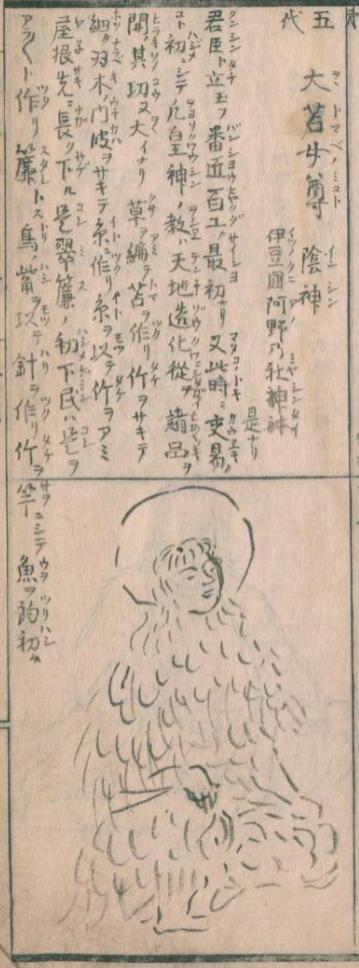 五代
大苫女尊 陰神
伊豆國阿野乃社神躰
是ナリ
君臣ト立玉フ番匠百工ノ最初ナリ 又此時ニ交易ノ
初ニシテ 皇神ノ教ハ天地造化從ヒ諸品ヲ
開ク其功又大イナリ 草ヲ編テ苫ヲ作リ竹ヲサキテ
細ク 木ノ内皮ヲサキテ糸ニ作リ糸ヲ以テ竹ヲアミ
屋根先ニ長ク下ル是翠簾ノ初下民ハ是ヲ
アラ〱ト作リ簾トス 鳥ノ觜ヲ以テ針ヲ作リ竹ヲ
竿ニシテ魚ヲ釣初ム